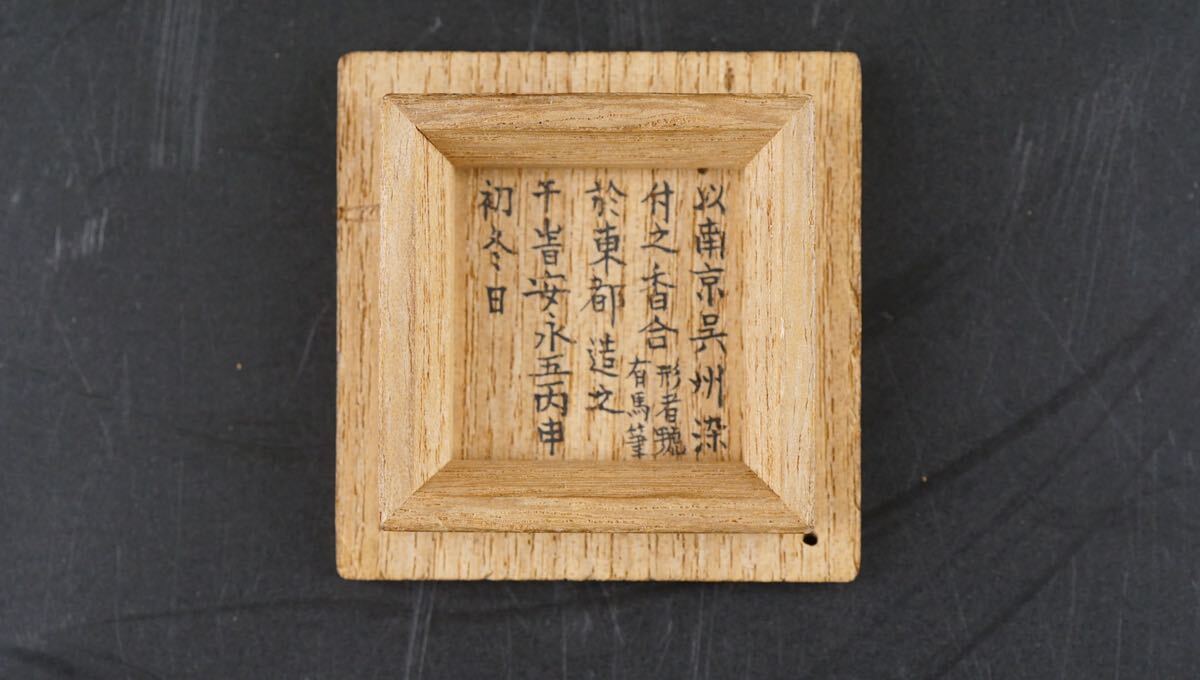 以南京呉州染
付之香合形者號
有馬筆
於東都造之
干時安永五丙申
初冬日